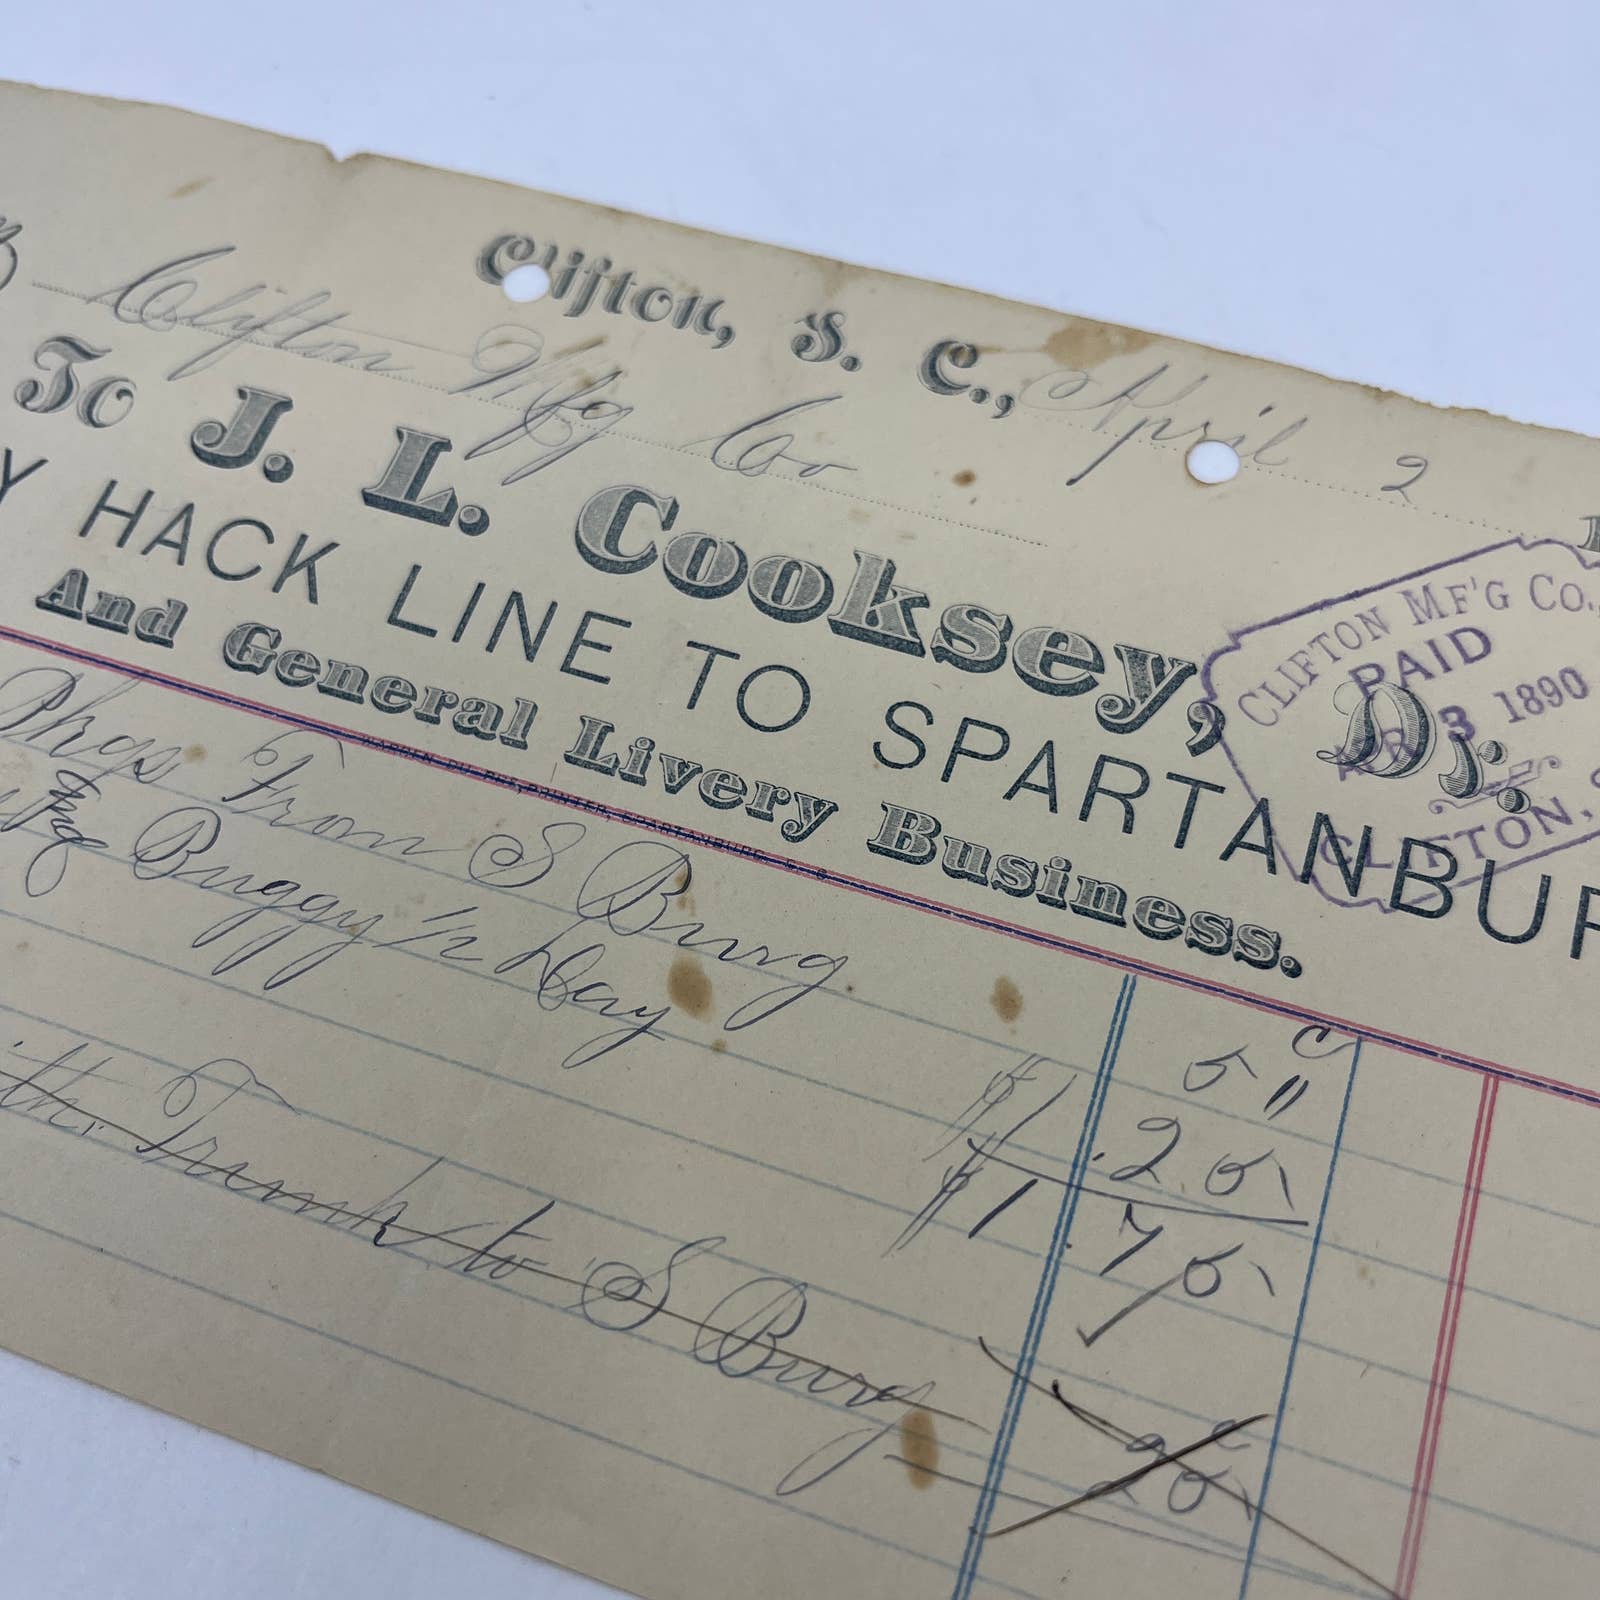 Clifton, S. C., April 2
Clifton Mfg Co
To J. L. Cooksey, Dr.
Y HACK LINE TO SPARTANBUR
And General Livery Business.
CLIFTON MF'G CO.,
PAID
APR 3 1890
CLIFTON, S
HARDEN DU PRE, PRINTER, SPARTANBURG, S. C.
Phgs From S Burg 5 c
Buggy 1/2 Day $1 "
.25
$1.75
Trunk to S Burg 25